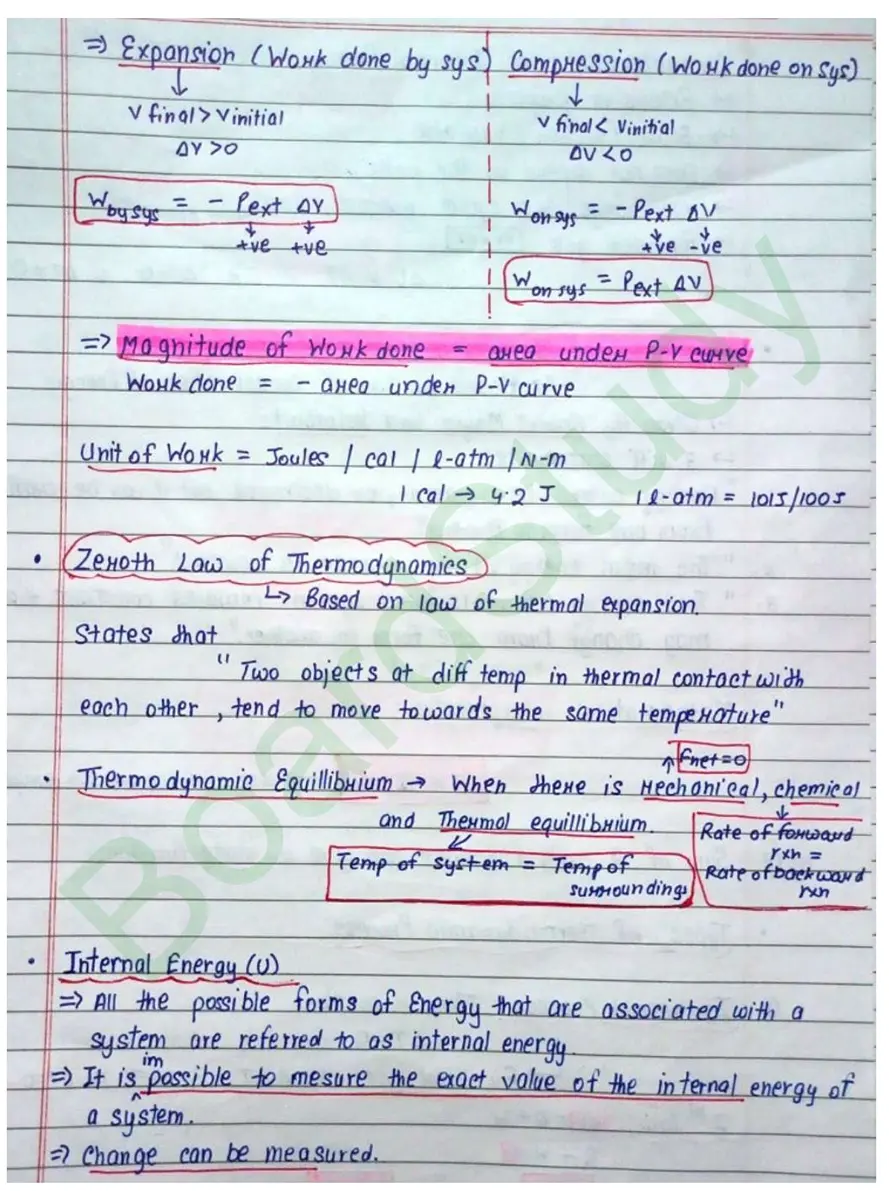 ⇒ Expansion (Work done by sys)
↓
V final > Vinitial
ΔV >0
W by sys = - Pext ΔV
↓ ↓
+ve +ve
Compression (Work done on sys)
↓
V final < Vinitial
ΔV <0
W on sys = - Pext ΔV
↓ ↓
+ve -ve
W on sys = Pext ΔV
⇒ Magnitude of Work done = area under P-V curve
Work done = - area under P-V curve
Unit of Work = Joules / cal / l-atm / N-m
1 cal → 4.2 J 1 l-atm = 101J/100J
• Zeroth Law of Thermodynamics
↳ Based on law of thermal expansion.
States that
" Two objects at diff temp in thermal contact with
each other , tend to move towards the same temperature"
↑ Fnet=0
• Thermodynamic Equillibrium → When there is mechanical, chemical
and Thermal equillibrium.
Temp of system = Temp of
surroundings
↓
Rate of forward
rxn =
Rate of backward
rxn
• Internal Energy (U)
⇒ All the possible forms of Energy that are associated with a
system are referred to as internal energy.
⇒ It is impossible to mesure the exact value of the internal energy of
a system.
⇒ Change can be measured.
BoardStudy